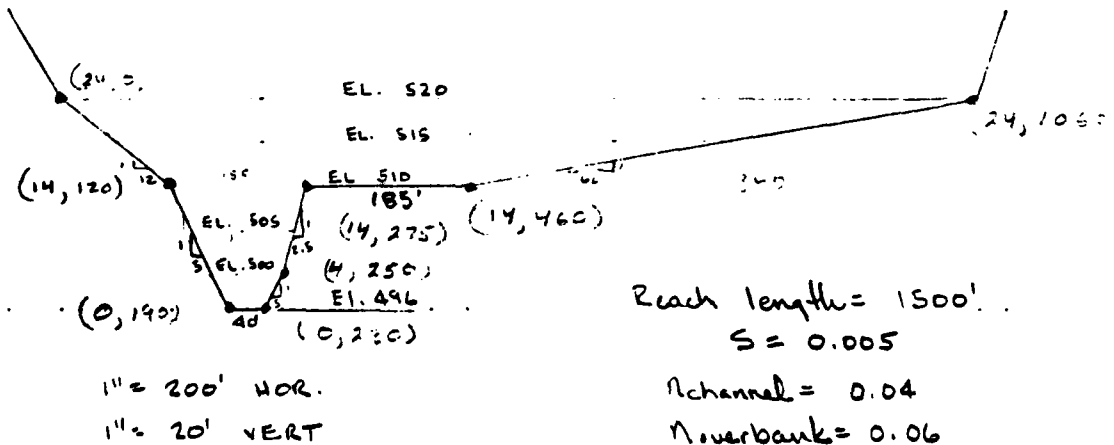 (24, 0
EL. 520
EL. 515
24, 1060
(14, 120)
1
12
EL 510
185'
(14, 460)
EL. 505
1
2.5
(14, 275)
1
5
EL. 500
(4, 250)
El. 496
(0, 190)
40
5
(0, 230)
Reach length = 1500'.
S = 0.005
1" = 200' HOR.
nchannel = 0.04
1" = 20' VERT
noverbank = 0.06